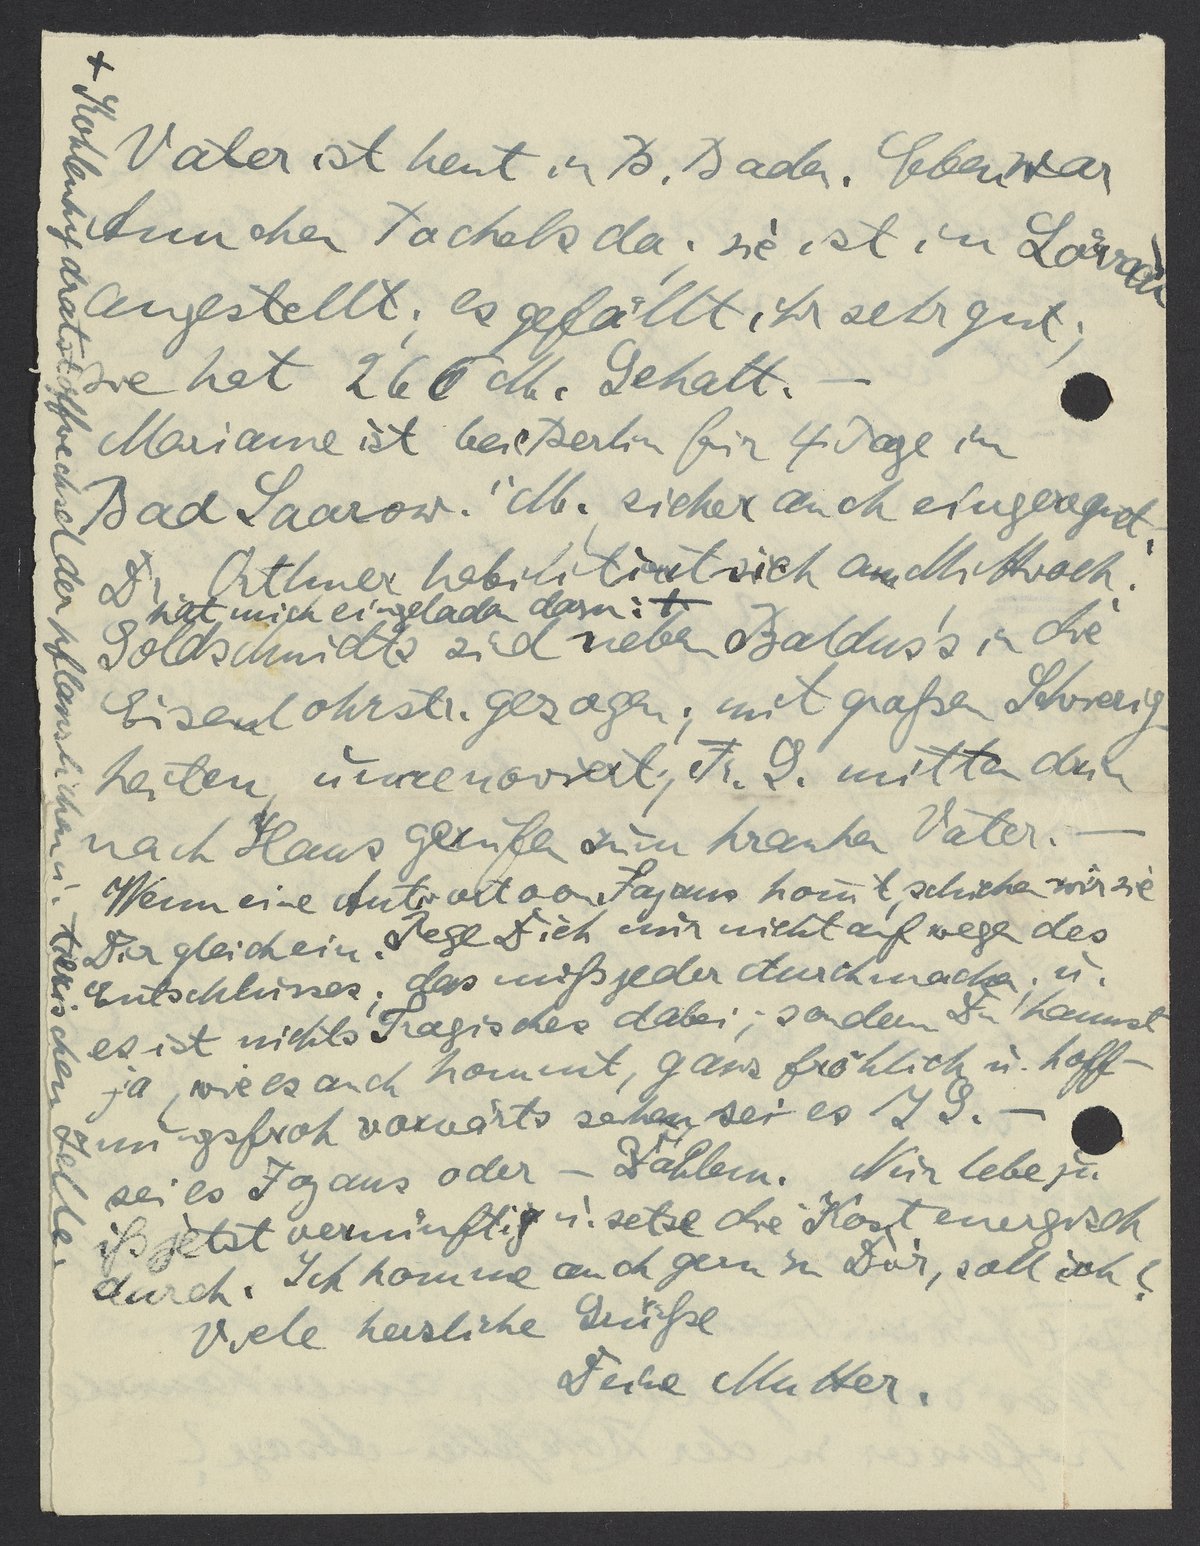 Vater ist heut in B. Baden. Eben war
Ännchen Tochels da; sie ist in Lörrach
angestellt; es gefällt ihr sehr gut;
sie hat 260 M. Gehalt. —
Marianne ist bei Berlin für 4 Tage in
Bad Saarow. M. sicher auch eingeregnet.
Dr. Orthner habilitiert sich am Mittwoch.
hat mich eingeladen dazu: +
Goldschmidts sind neben Baldus's in die
Eisenlohrstr. gezogen; mit großen Schwierig-
keiten, unrenoviert; Fr. G. mitten drin
nach Haus gerufen zum kranken Vater. —
Wenn eine Antwort von Fajans kommt, schicken wir sie
Dir gleich ein. Rege Dich nur nicht auf wegen des
Entschlusses; das muß jeder durchmachen, u.
es ist nichts Tragisches dabei; sondern Du kannst
ja, wie es auch kommt, ganz fröhlich u. hoff-
nungsfroh vorwärts sehen, sei es I G. —
sei es Fajans oder — Dahlem. Nur lebe u
iß jetzt vernünftig u. setze die Kost energisch
durch. Ich komme auch gern zu Dir, soll ich?
Viele herzliche Grüße
Deine Mutter.
+ Kohlenhydratstoffwechsel der pflanzlichen u. tierischen Zelle.